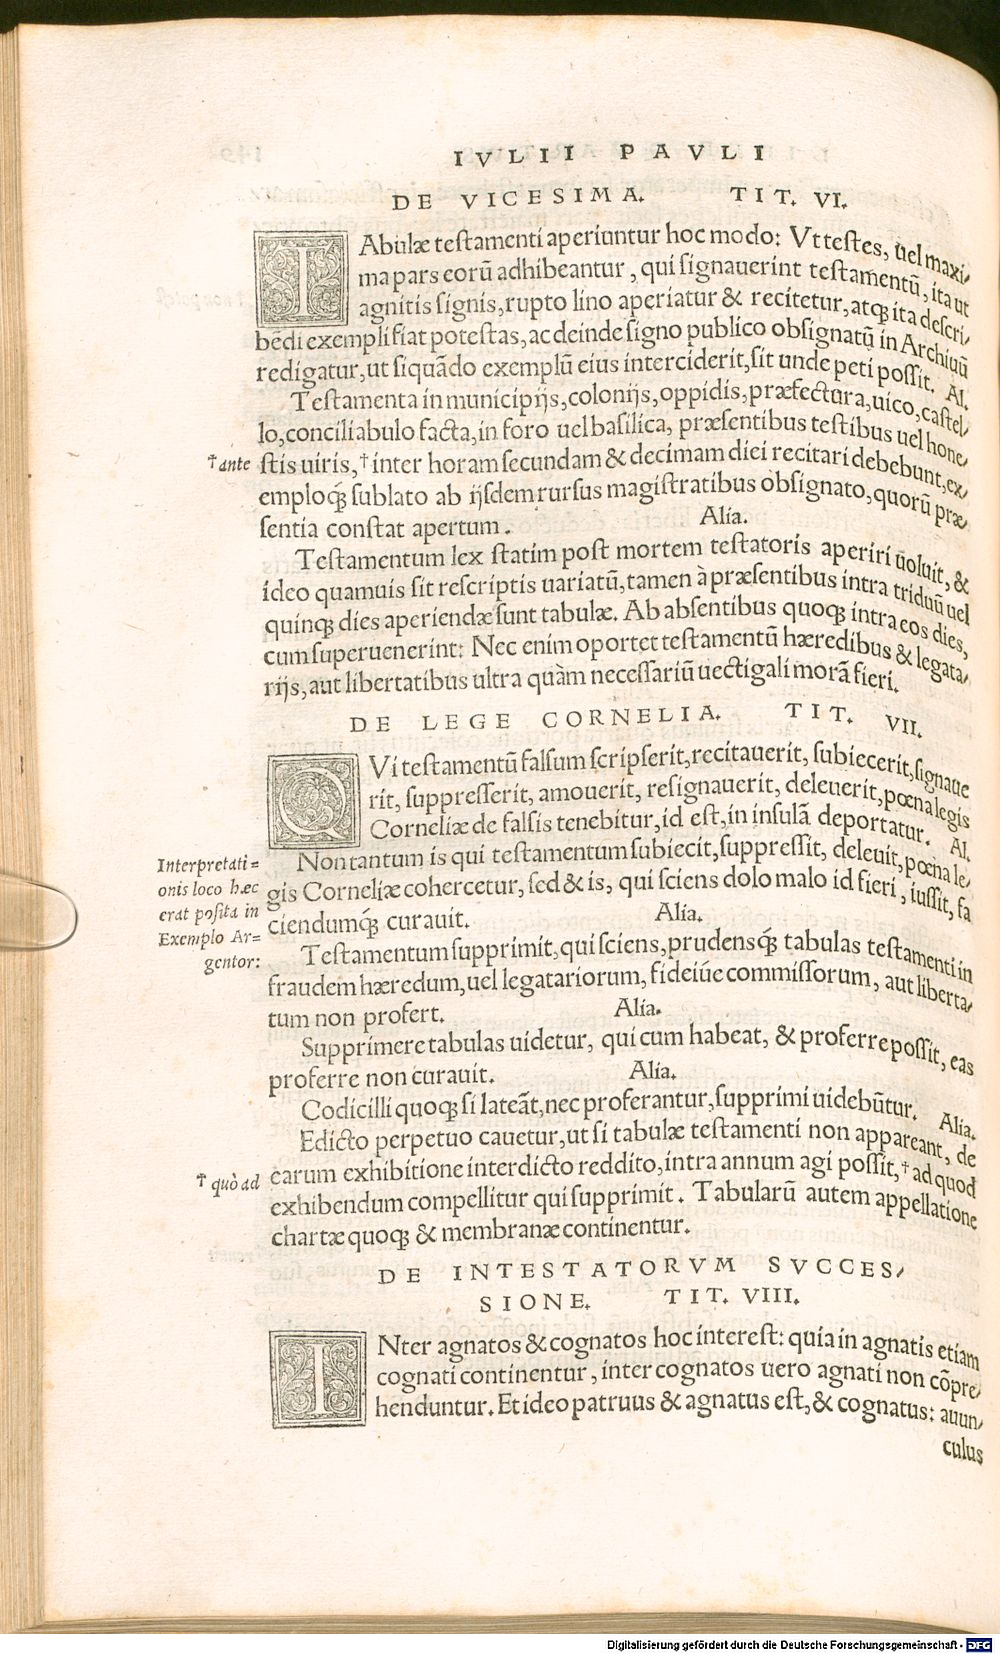 IVLII PAVLI
DE VICESIMA. TIT. VI.
IAbulæ testamenti aperiuntur hoc modo: Vt testes, uel maxi-
ma pars eorũ adhibeantur, qui signauerint testamentũ, ita ut
agnitis signis, rupto lino aperiatur & recitetur, atq; ita descri-
bẽdi exempli fiat potestas, ac deinde signo publico obsignatũ in Archiuũ
redigatur, ut siquãdo exemplũ eius interciderit, sit unde peti possit. Al.
Testamenta in municipijs, colonijs, oppidis, præfectura, uico, castel-
lo, conciliabulo facta, in foro uel basilica, præsentibus testibus uel hone-
† ante stis uiris, † inter horam secundam & decimam diei recitari debebunt, ex-
emploq́; sublato ab ijsdem rursus magistratibus obsignato, quorũ præ-
sentia constat apertum. Alia.
Testamentum lex statim post mortem testatoris aperiri uoluit, &
ideo quamuis sit rescriptis uariatũ, tamen à præsentibus intra triduũ uel
quinq; dies aperiendæ sunt tabulæ. Ab absentibus quoq; intra eos dies,
cum superuenerint: Nec enim oportet testamentũ hæredibus & legata-
rijs, aut libertatibus ultra quàm necessariũ uectigali morã fieri.
DE LEGE CORNELIA. TIT. VII.
QVi testamentũ falsum scripserit, recitauerit, subiecerit, signaue
rit, suppresserit, amouerit, resignauerit, deleuerit, pœna legis
Corneliæ de falsis tenebitur, id est, in insulã deportatur. Al.
Non tantum is qui testamentum subiecit, suppressit, deleuit, pœna le-
gis Corneliæ cohercetur, sed & is, qui sciens dolo malo id fieri, iussit, fa
ciendumq́; curauit. Alia.
Interpretati=
onis loco hæc
erat posita in
Exemplo Ar=
gentor:
Testamentum supprimit, qui sciens, prudensq́; tabulas testamenti in
fraudem hæredum, uel legatariorum, fideiúe commissorum, aut liberta-
tum non profert. Alia.
Supprimere tabulas uidetur, qui cum habeat, & proferre possit, eas
proferre non curauit. Alia.
Codicilli quoq; si lateãt, nec proferantur, supprimi uidebũtur. Alia.
Edicto perpetuo cauetur, ut si tabulæ testamenti non appareant, de
† quò ad earum exhibitione interdicto reddito, intra annum agi possit, † ad quod
exhibendum compellitur qui supprimit. Tabularũ autem appellatione
chartæ quoq; & membranæ continentur.
DE INTESTATORVM SVCCES-
SIONE. TIT. VIII.
INter agnatos & cognatos hoc interest: quia in agnatis etiam
cognati continentur, inter cognatos uero agnati non cõpre-
henduntur. Et ideo patruus & agnatus est, & cognatus: auun-
culus
Digitalisierung gefördert durch die Deutsche Forschungsgemeinschaft - DFG